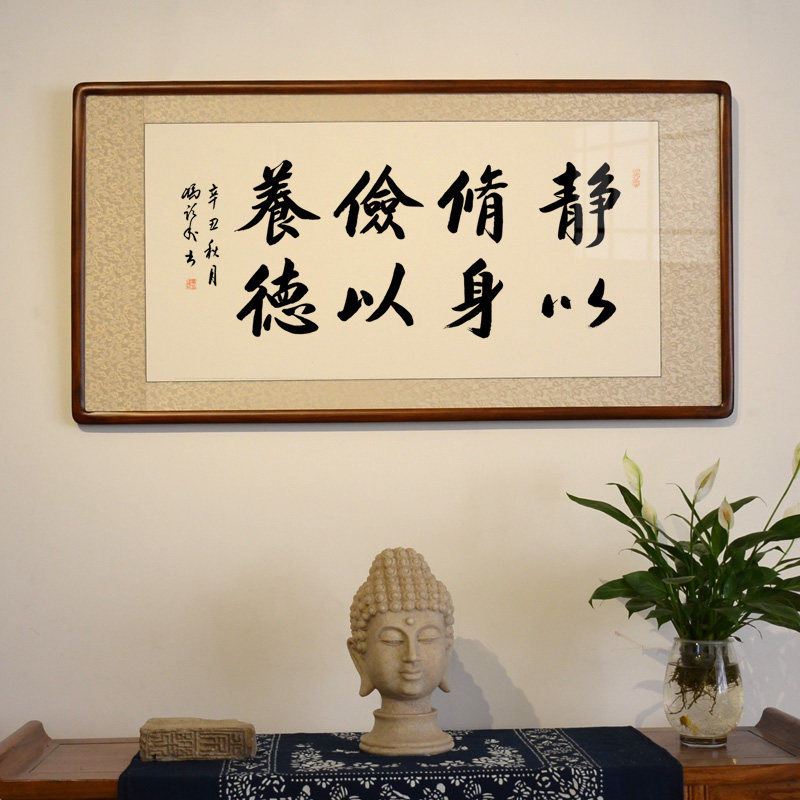 静以
脩身
儉以
養德
辛丑秋月